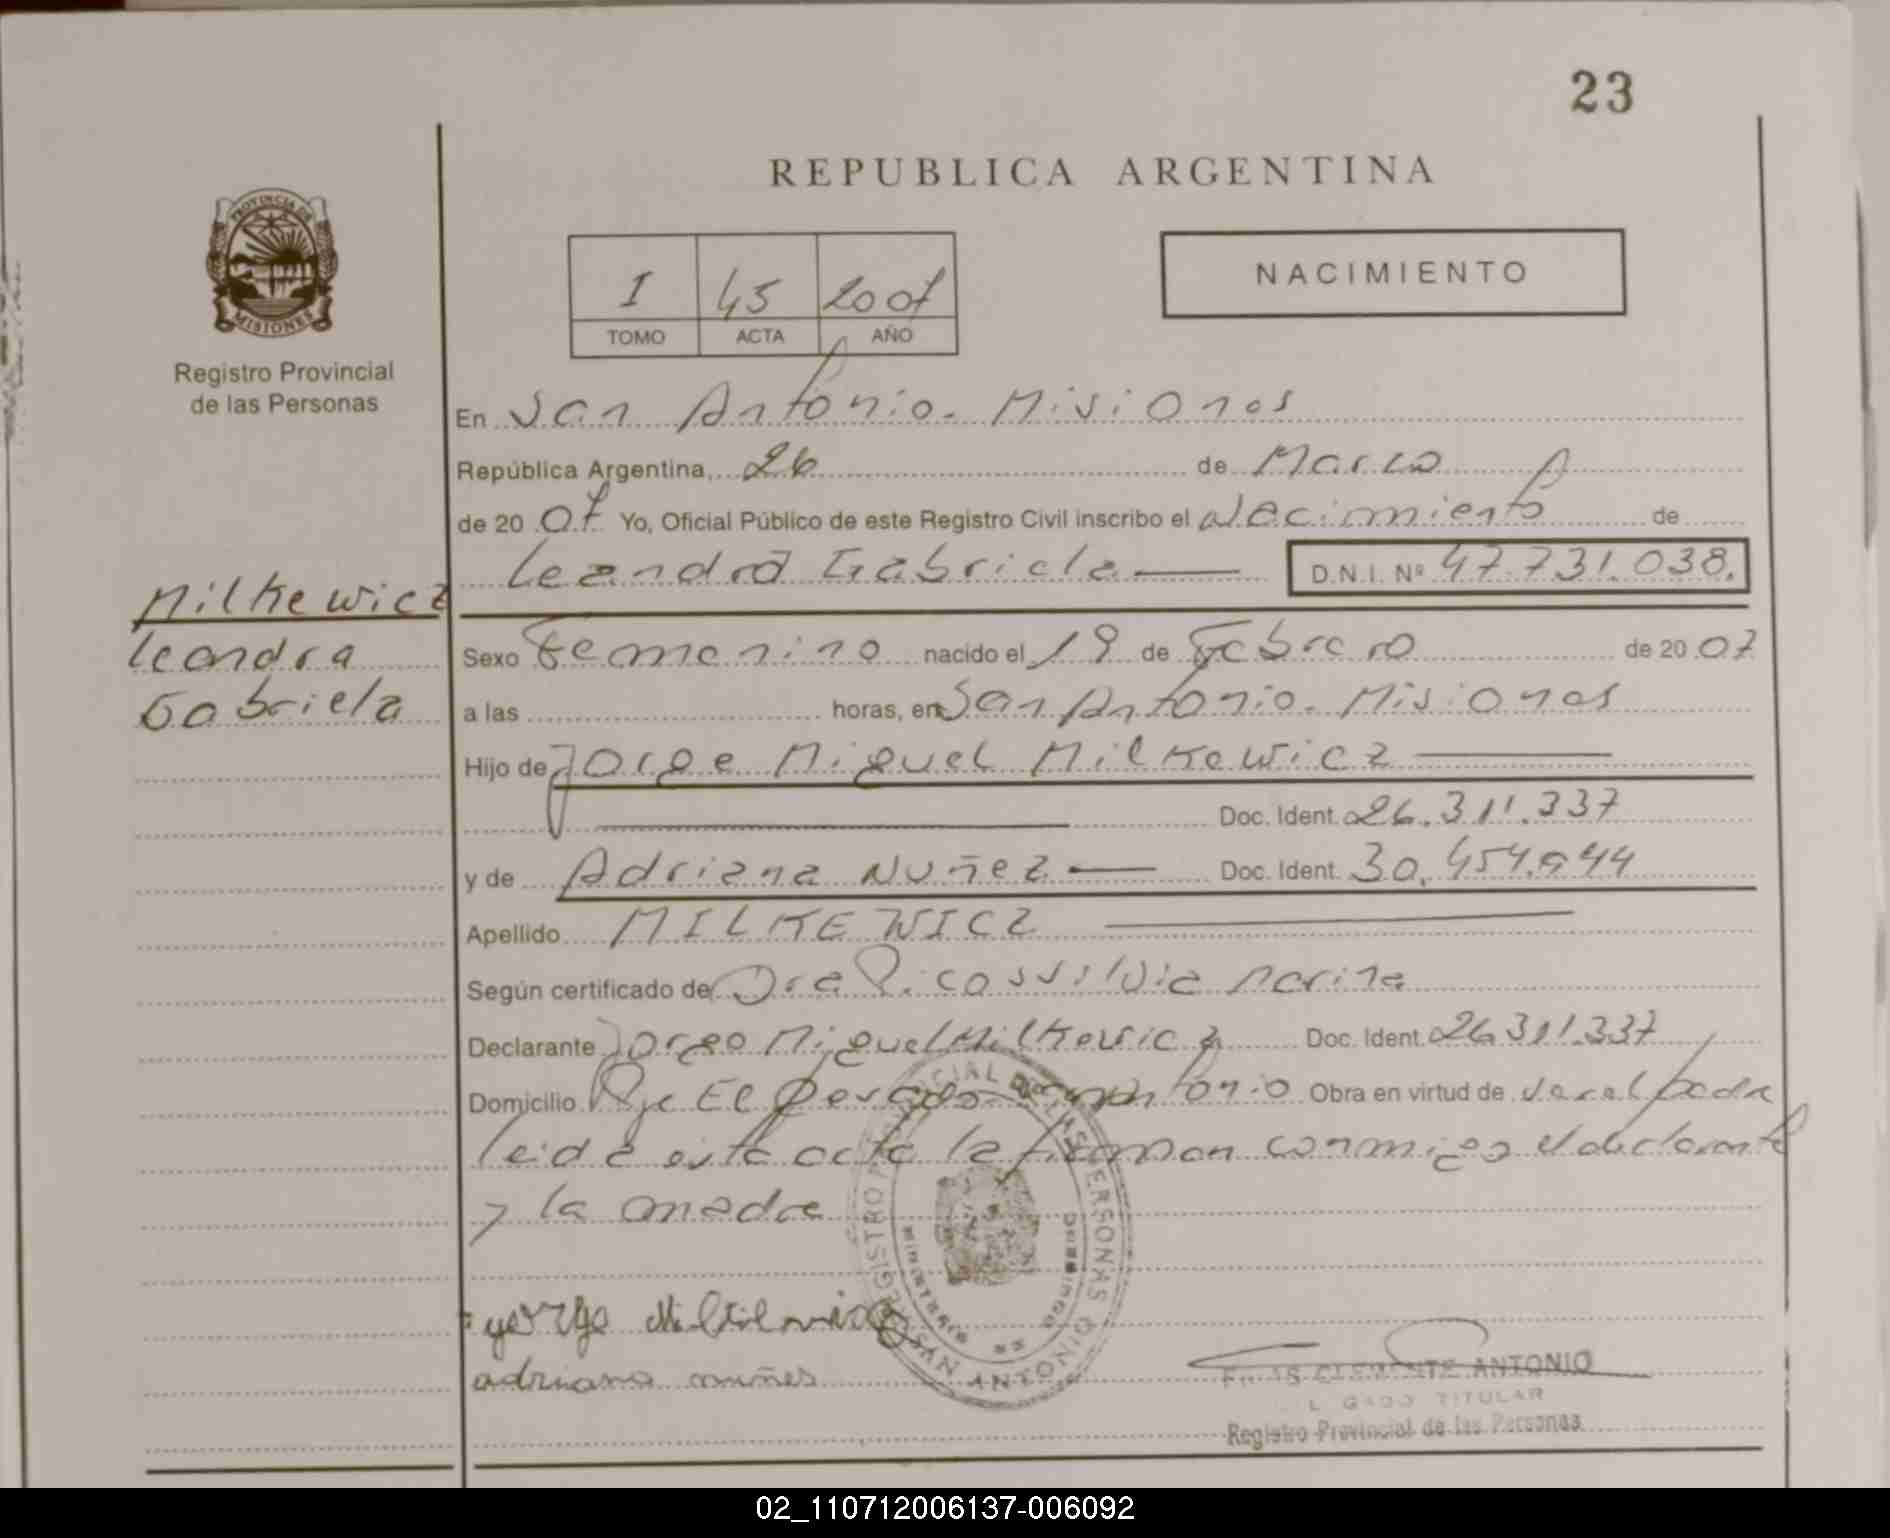 23
REPUBLICA ARGENTINA
PROVINCIA DE
MISIONES
Registro Provincial
de las Personas
I 45 2007
TOMO ACTA AÑO
NACIMIENTO
En San Antonio. Misiones
República Argentina, 26 de Marzo
de 20 07 Yo, Oficial Público de este Registro Civil inscribo el Nacimiento de
Leandra Gabriela D.N.I. Nº 47.731.038.
Milkewicz
Leandra
Gabriela
Sexo Femenino nacido el 19 de Febrero de 20 07
a las horas, en San Antonio. Misiones
Hijo de Jorge Miguel Milkewicz
Doc. Ident. 26.311.337
y de Adriana Nuñez Doc. Ident. 30.454.944
Apellido MILKEWICZ
Según certificado de Dra Silvia
Declarante Jorge Miguel Milkewicz Doc. Ident. 26.311.337
Domicilio Pje El Obra en virtud de
leida esta acta la firman conmigo el declarante
y la madre
REGISTRO PERSONAS
SAN ANTONIO
adriana nuñes
CLEMENTE ANTONIO
TITULAR
Registro Provincial de las Personas
02_110712006137-006092